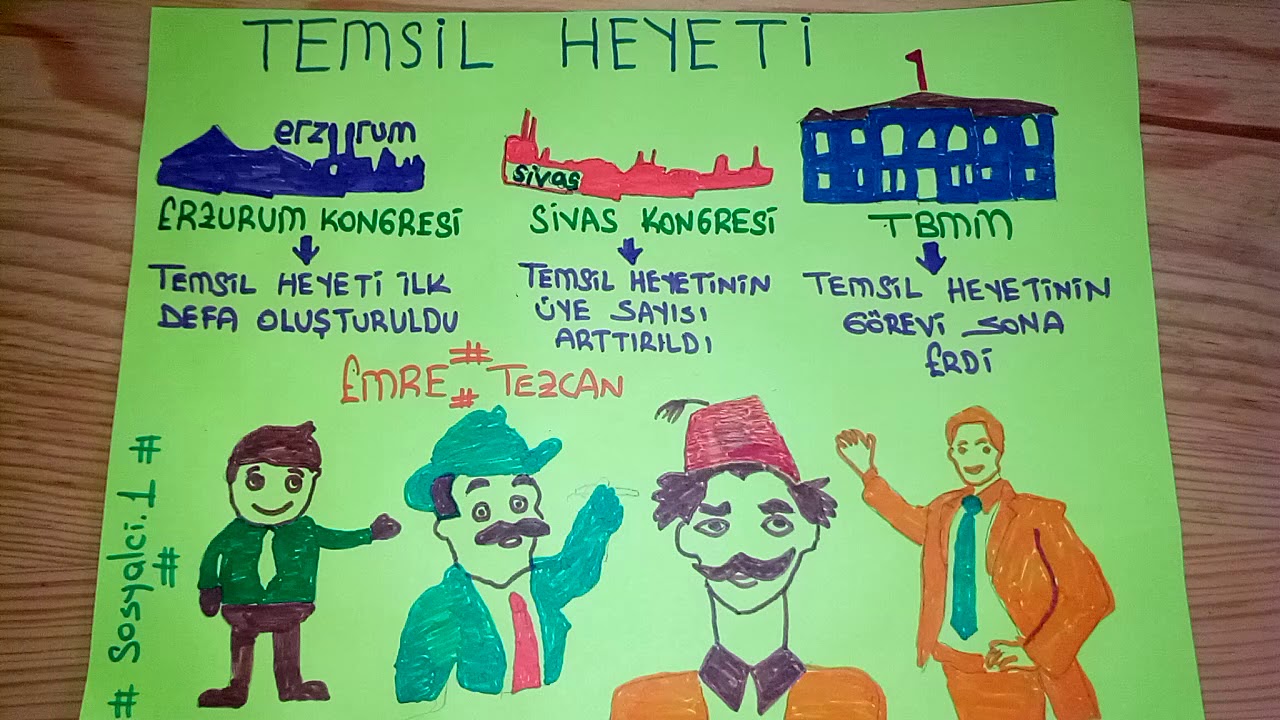 TEMSİL HEYETİ
erzurum
ERZURUM KONGRESİ
TEMSİL HEYETİ İLK
DEFA OLUŞTURULDU
sivas
SİVAS KONGRESİ
TEMSİL HEYETİNİN
ÜYE SAYISI
ARTTIRILDI
TBMM
TEMSİL HEYETİNİN
GÖREVİ SONA
ERDİ
EMRE # # TEZCAN
# Sosyalci.1 #
#